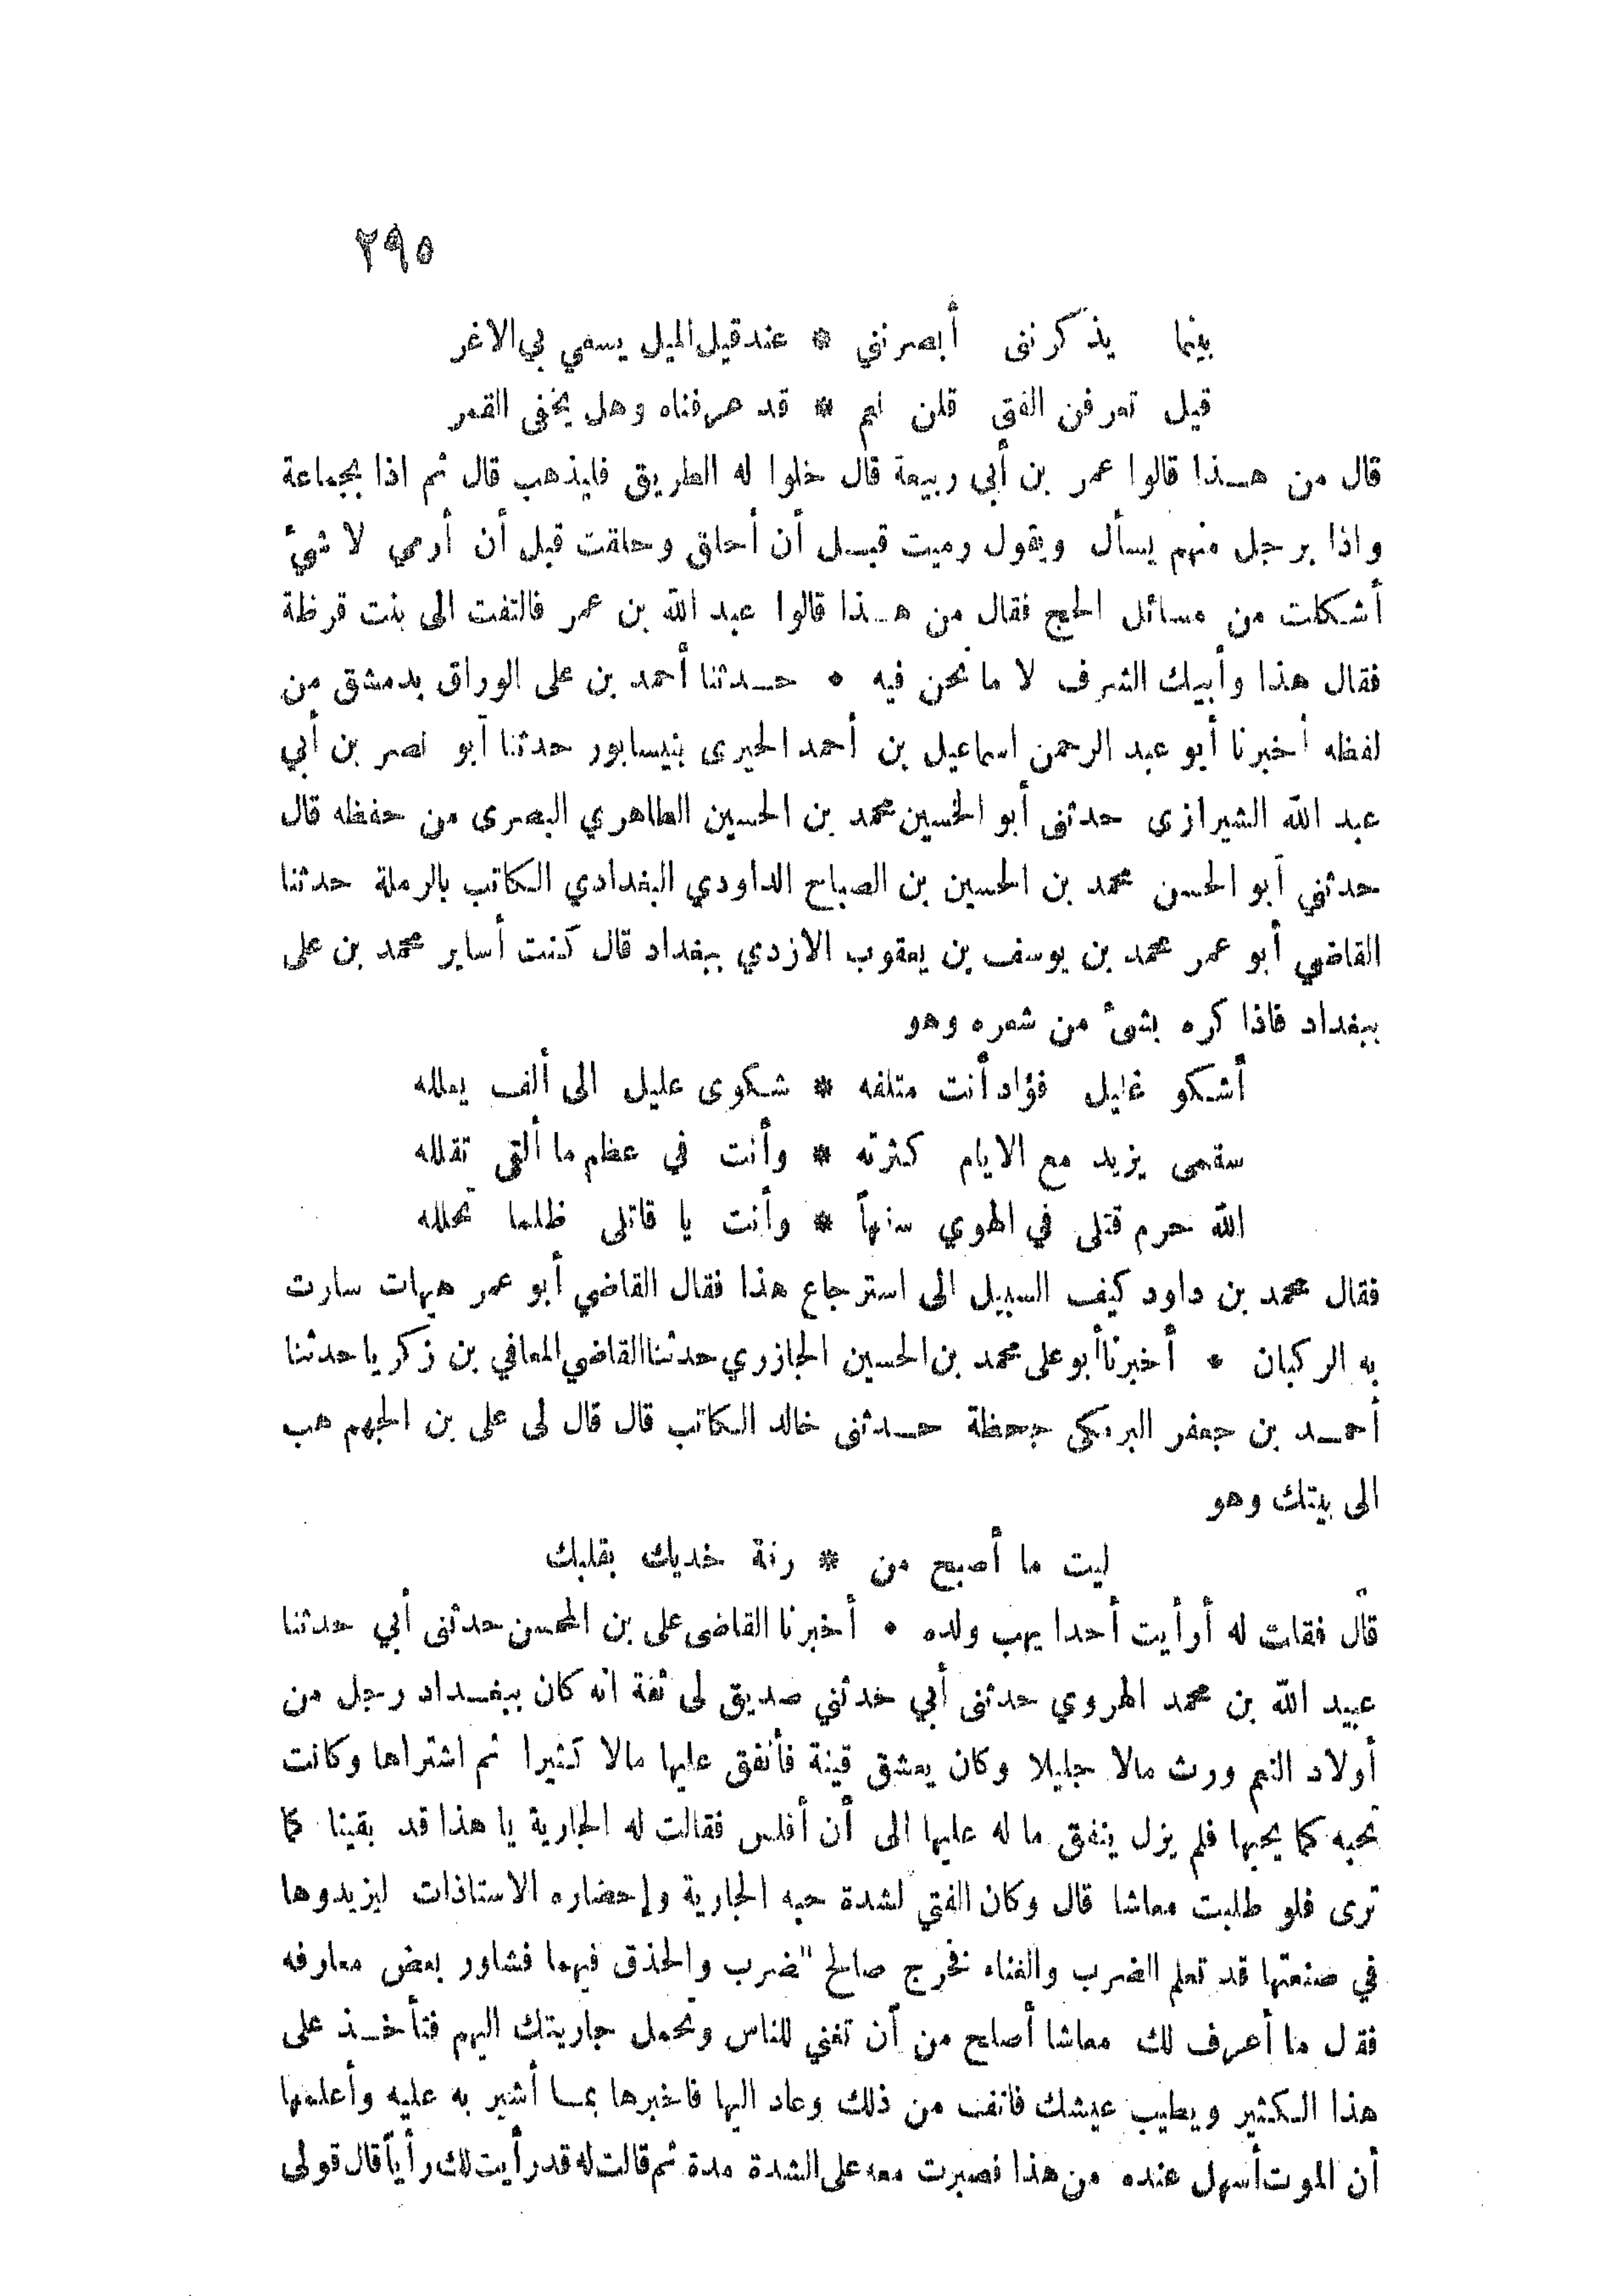 ٢٩٥
بينما يذكرنني أبصرنني * عند قيل الميل يسعي بي الاغر
قيل تعرفن الفتى قلن نعم * قد عرفناه وهل يخفى القمر
قال من هـذا قالوا عمر بن أبي ربيعة قال خلوا له الطريق فليذهب قال ثم اذا بجماعة
واذا برجل منهم يسأل ويقول رميت قبـل أن أحلق وحلقت قبل أن أرمي لا شئ
أشكلت من مسائل الحج فقال من هـذا قالوا عبد الله بن عمر فالتفت الى بنت قرظة
فقال هذا وأبيك الشرف لا ما نحن فيه * حـدثنا أحمد بن على الوراق بدمشق من
لفظه أخبرنا أبو عبد الرحمن اسماعيل بن أحمد الحيرى بنيسابور حدثنا أبو نصر بن أبي
عبد الله الشيرازى حدثنى أبو الخسين محمد بن الحسين الظاهري البصرى من حفظه قال
حدثني أبو الحسن محمد بن الحسين بن الصباح الداودي البغدادي الكاتب بالرملة حدثنا
القاضي أبو عمر محمد بن يوسف بن يعقوب الازدي ببغداد قال كنت أساير محمد بن على
ببغداد فاذا كره بشئ من شعره وهو
أشكو غليل فؤاد أنت متلفه * شكوى عليل الى ألف يعلله
سقمى يزيد مع الايام كثرته * وأنت في عظم ما ألقى تقلله
الله حرم قتلى في الهوي سفهاً * وأنت يا قاتلى ظلما تحلله
فقال محمد بن داود كيف السبيل الى استرجاع هذا فقال القاضي أبو عمر هيهات سارت
به الركبان * أخبرنا أبو على محمد بن الحسين الجازري حدثنا القاضي المعافي بن زكريا حدثنا
أحمـد بن جعفر البرمكى جحظة حـدثنى خالد الكاتب قال قال لى على بن الجهم هب
الى بيتك وهو
ليت ما أصبح من * رقة خديك بقلبك
قال فقلت له أرأيت أحدا يهب ولده * أخبرنا القاضى على بن المحسن حدثنى أبي حدثنا
عبيد الله بن محمد الهروي حدثنى أبي حدثني صديق لى ثقة انه كان ببغـداد رجل من
أولاد النعم ورث مالا جليلا وكان يعشق قينة فأنفق عليها مالا كثيرا ثم اشتراها وكانت
تحبه كما يحبها فلم يزل ينفق ماله عليها الى أن أفلس فقالت له الجارية يا هذا قد بقينا كما
ترى فلو طلبت معاشا قال وكان الفتي لشدة حبه الجارية وإحضاره الاستاذات ليزيدوها
في صنعتها قد تعلم الضرب والغناء فخرج صالح الضرب والحذق فيهما فشاور بعض معارفه
فقال ما أعرف لك معاشا أصلح من أن تغني للناس وتحمل جاريتك اليهم فتأخـذ على
هذا الكثير ويطيب عيشك فانف من ذلك وعاد اليها فاخبرها بمـا أشير به عليه وأعلمها
أن الموت أسهل عنده من هذا فصبرت معه على الشدة مدة ثم قالت له قد رأيت لك رأياً قال قولى